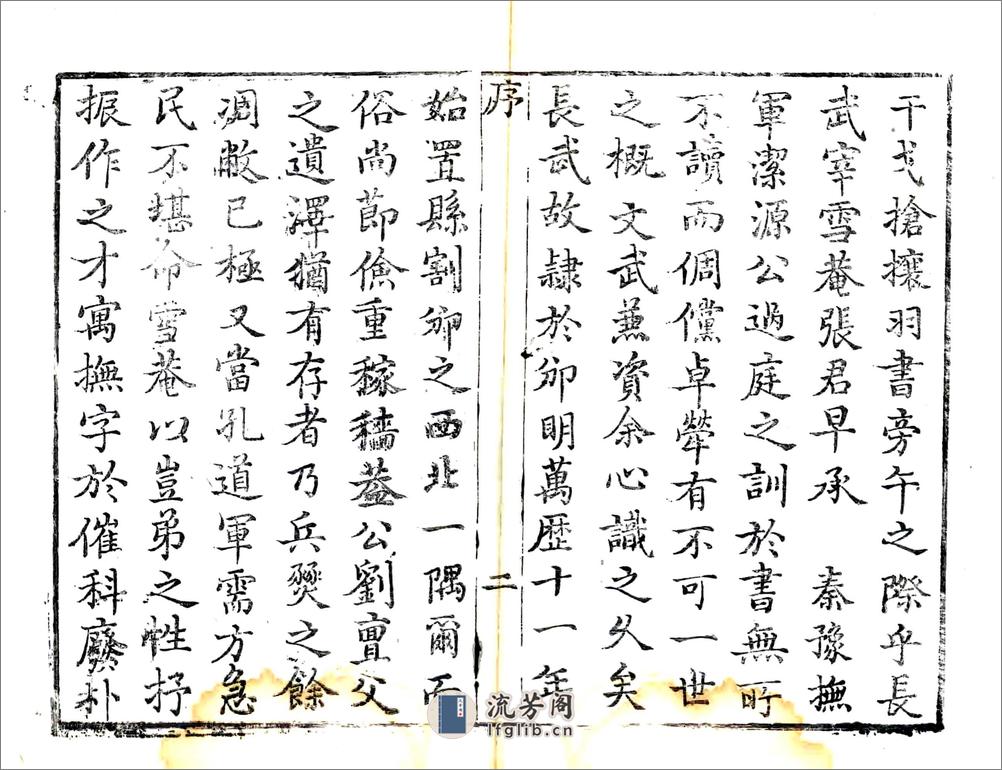 干戈搶攘羽書旁午之際乎長
武宰雪菴張君早承　秦豫撫
軍潔源公過庭之訓於書無所
不讀而倜儻卓犖有不可一世
之概文武兼資余心識之久矣
長武故隸於邠明萬歷十一年
序　二
始置縣割邠之西北一隅爾而
俗尚節儉重稼穡葢公劉亶父
之遺澤猶有存者乃兵燹之餘
凋敝已極又當孔道軍需方急
民不堪命雪菴以豈弟之性抒
振作之才寓撫字於催科廢朴
流芳阁
lfglib.cn